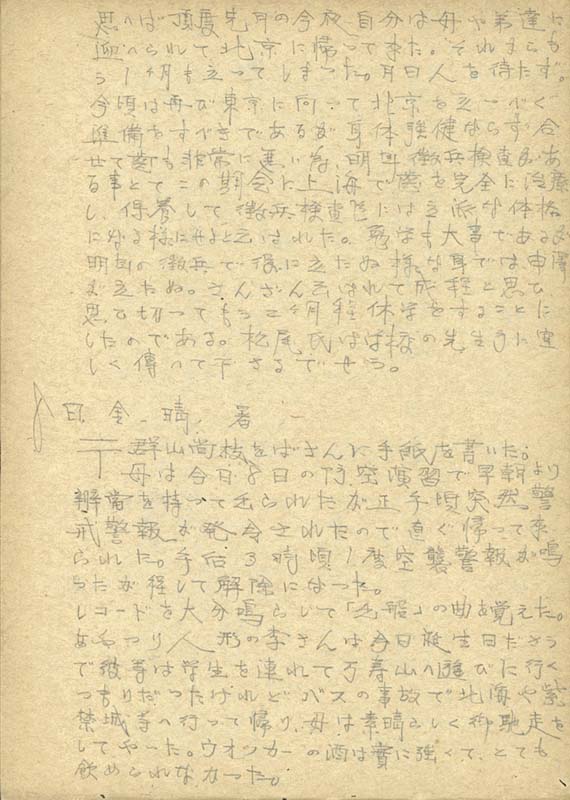 思へば丁度先月の今夜自分は母や弟達に
迎へられて北京に帰って来た。それすらも
う1ヶ月も立ってしまった。月日人を待たず。
今頃は再び東京に向って北京を立つべく
準備をすべきであるが身体強健ならず合
せて歯も非常に悪い為、明年徴兵検査があ
る事とてこの期会に上海で歯を完全に治療
し、保養して徴兵検査迄には立派な体格
になる様にせよと云はれた。勉学も大事であるが
明年の徴兵で役に立たぬ様な耳では申訳
が立たぬ。さんざん云はれて成程と思ひ
思ひ切ってもう二ヶ月程休学をすることに
したのである。松尾氏は学校の先生方に宜
しく傳へて下さるでせう。
8日、金、晴、暑
群山尚枝をばさんに手紙を書いた。
母は今日8日の防空演習で早朝より
辨當を持って出られたが正午頃突然警
戒警報が発令されたので直ぐ帰って来
られた。午后3時頃1度空襲警報が鳴
ったが経して解除になった。
レコードを大分鳴らして「出船」の曲を覚えた。
あやつり人形の李さんは今日誕生日ださう
で彼等は学生を連れて万寿山へ遊びに行く
つもりだったけれどバスの事故で北海や紫
禁城等へ行って帰り、母は素晴らしく御馳走を
してやった。ウオッカーの酒は實に強くて、とても
飲められなかった。